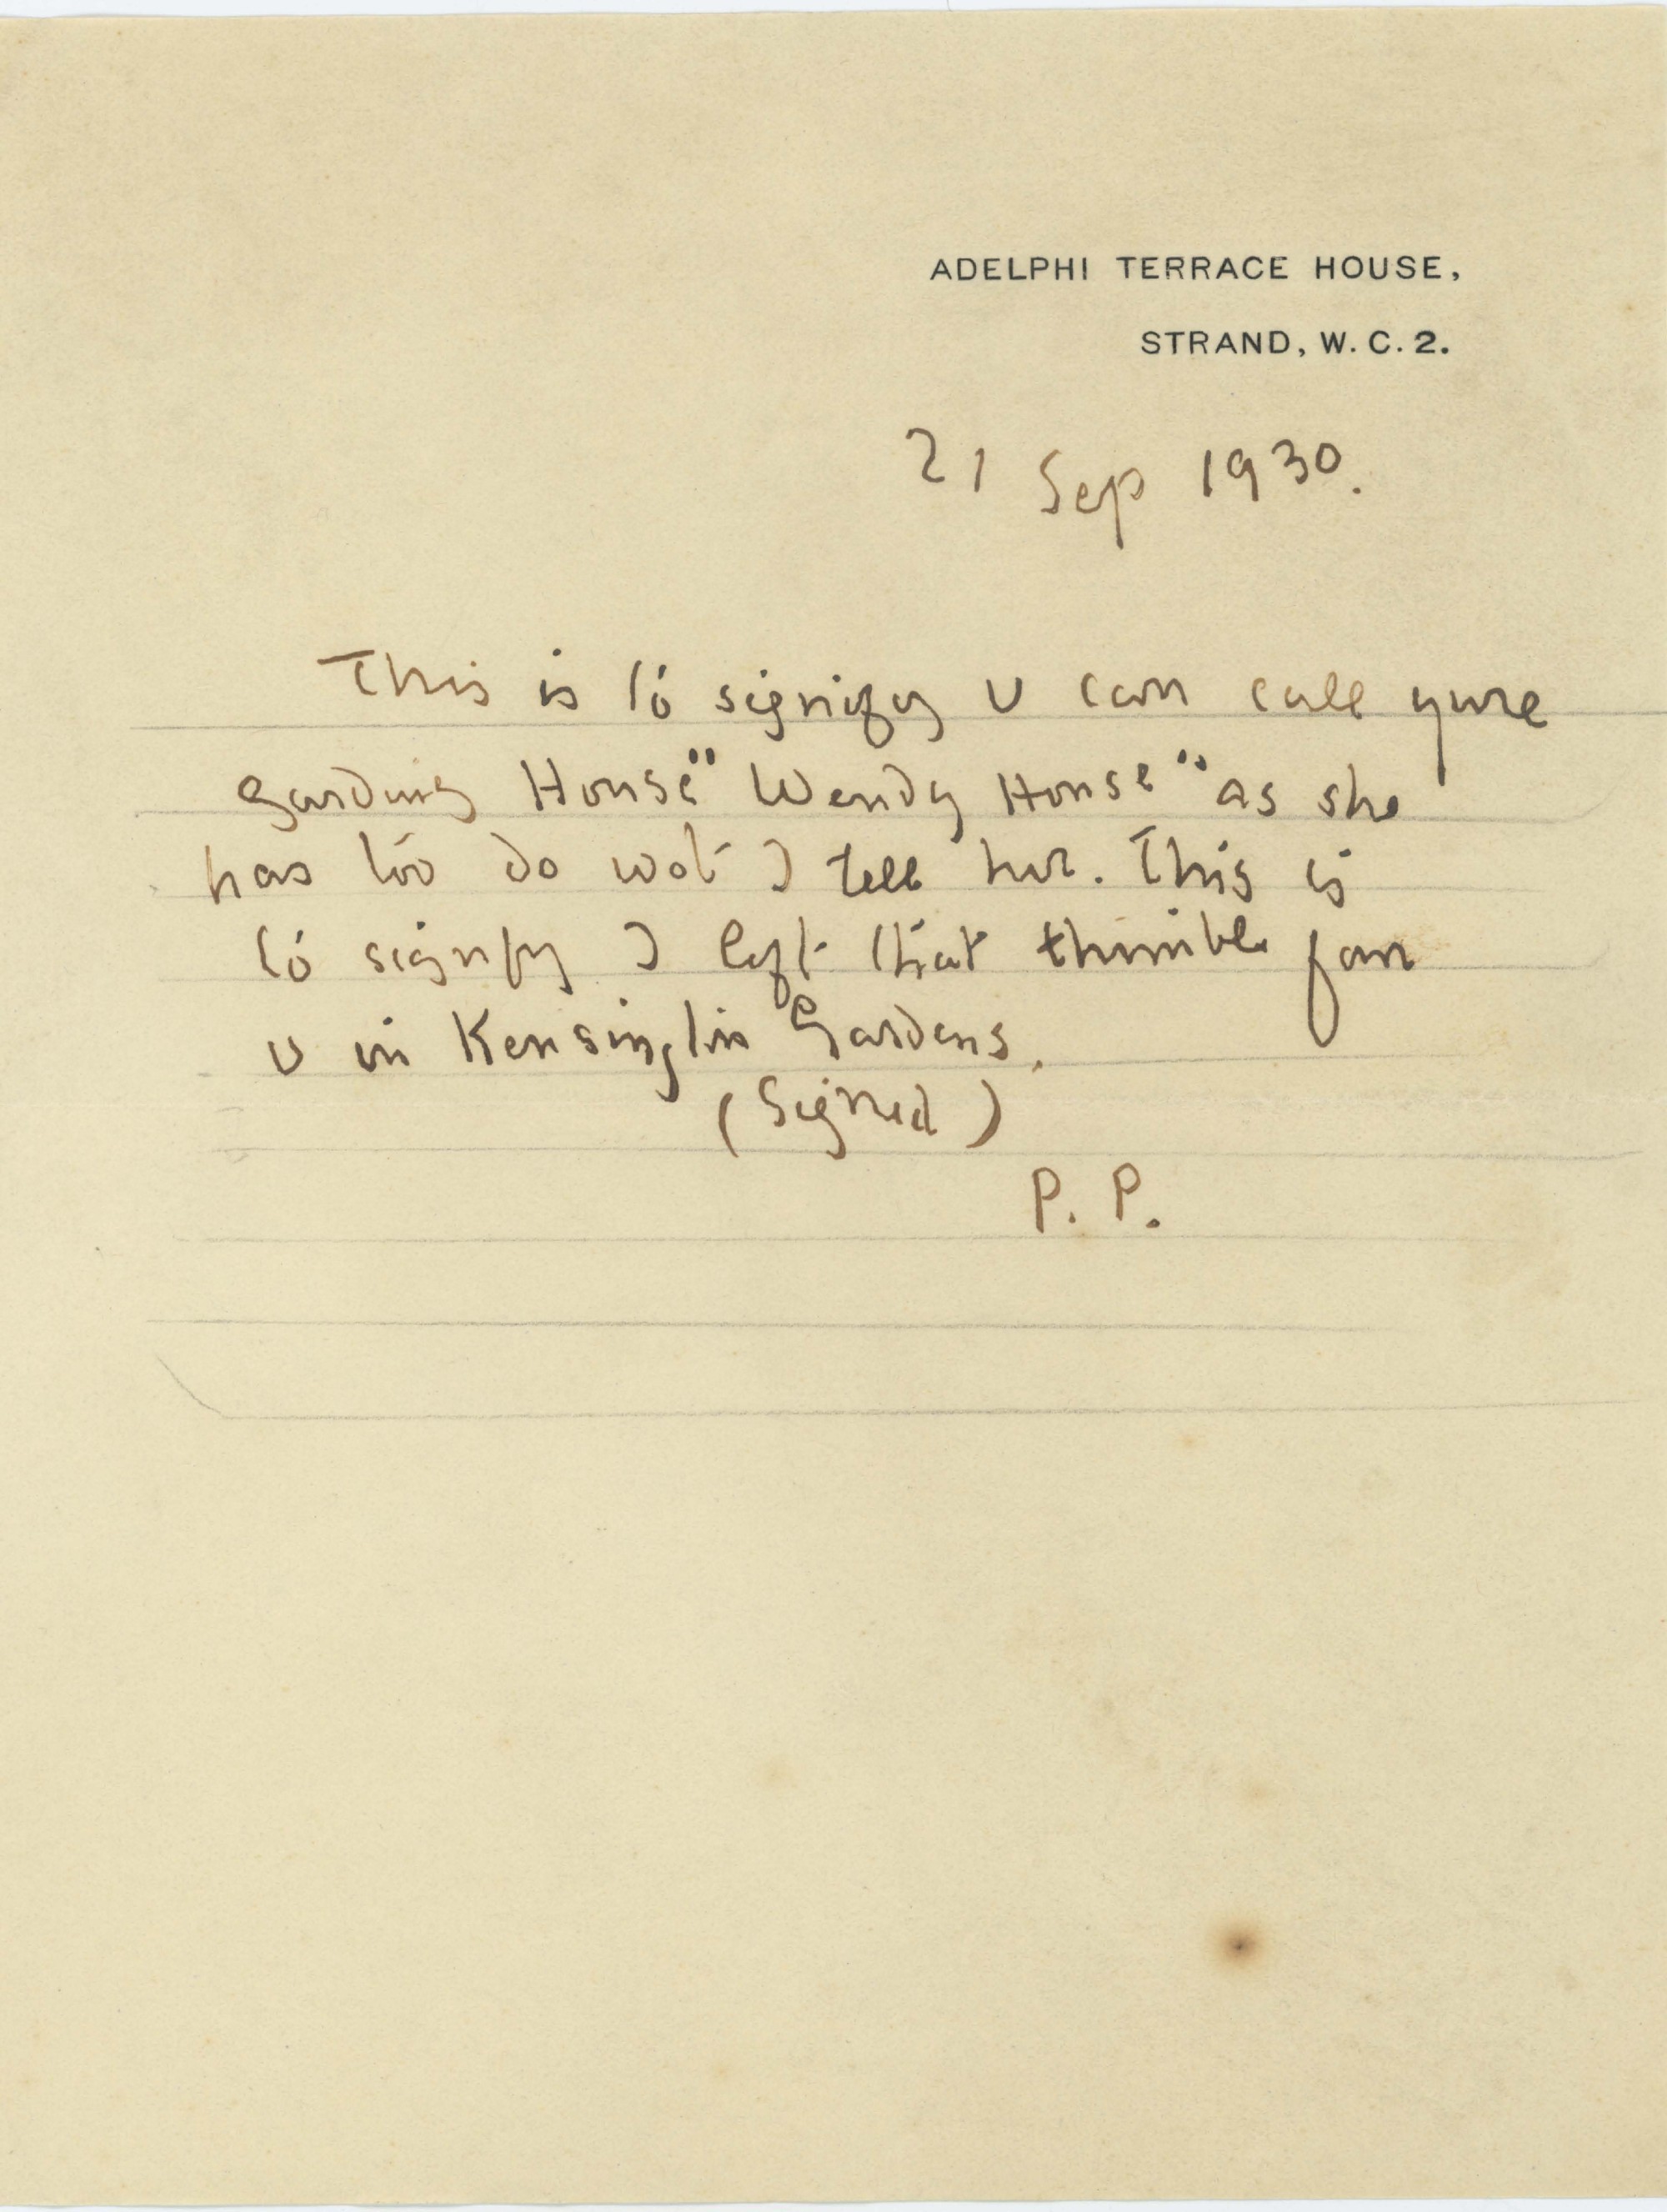 ADELPHI TERRACE HOUSE,
STRAND, W. C. 2.
21 Sep 1930.
This is to signify U can call yure
Garding House "Wendy House" as she
has too do wot I tell her. This is
to signify I left that thimble for
U in Kensingtin Gardens.
(Signed)
P. P.